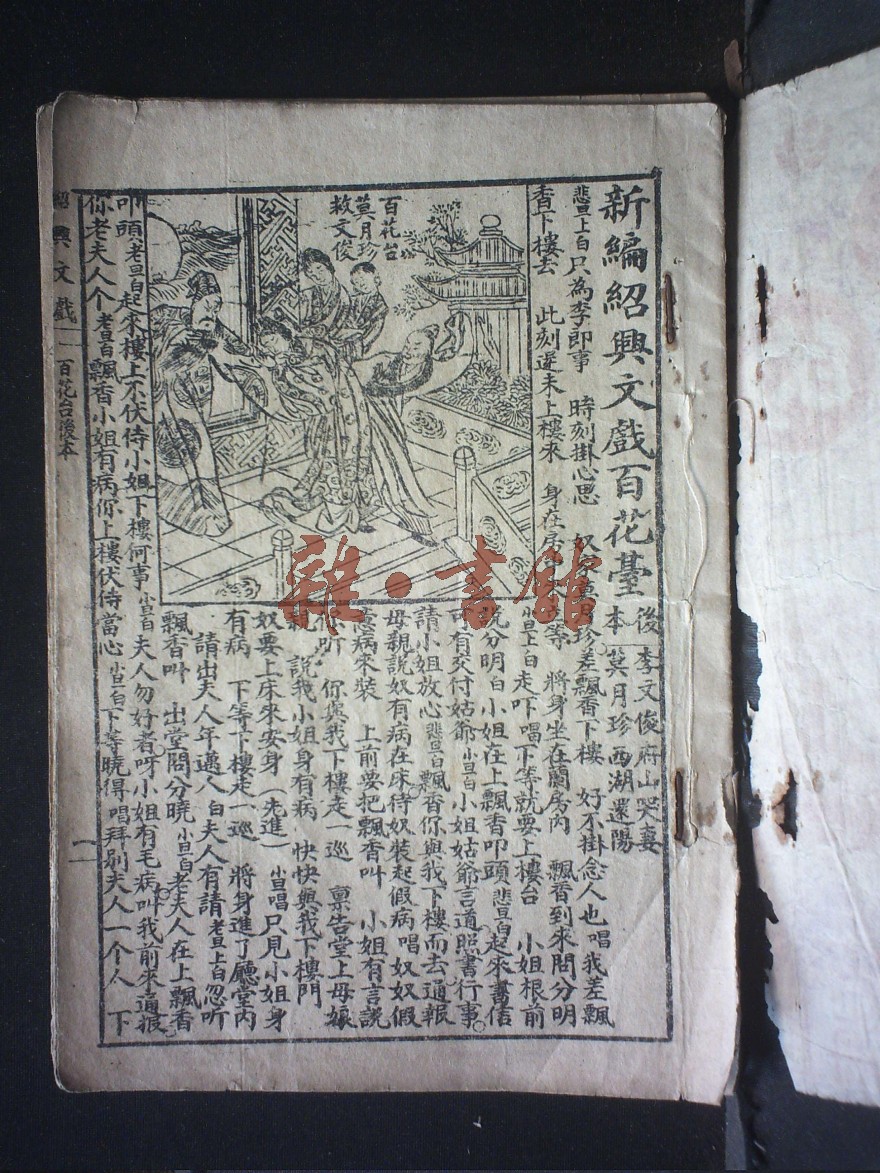 新編紹興文戲百花臺
後本
李文俊府山哭妻
莫月珍西湖還陽
悲旦上白只為李郎事　時刻掛心思　奴家莫月珍差飄香下樓　好不掛念人也唱我差飄
香下樓去　此刻還未上樓來　身在房　等　將身坐在蘭房內　飄香到來問分明
小旦上白走吓唱下等就要上樓台　小姐根前
說分明白小姐在上飄香叩頭悲旦白起來書信
可有交付姑爺小旦白小姐姑爺言道照書行事
請小姐放心悲旦白飄香你與我下樓而去通報
母親說奴有病在床待奴裝起假病唱奴奴假
病來裝　上前要把飄香叫　小姐有言說
你听　你與我下樓走一巡　稟告堂上母娘
親　說我小姐身有病　快快與我下樓門
奴要上床來安身（先進）小旦唱只見小姐身
有病　下等下樓走一巡　將身進了廳堂內
請出夫人年邁人白夫人有請老旦上白忽听
飄香叫　出堂問分曉小旦白老夫人在上飄香
叩頭老旦白起來樓上不伏侍小姐下樓何事小旦白夫人勿好者呀小姐有毛病叫我前來通报
你老夫人个老旦白飄香小姐有病你上樓伏侍當心小旦白下等曉得唱拜别夫人一个人　下
百花台
莫月珍
救文俊
紹興文戲　百花台後本
一
雜·書館